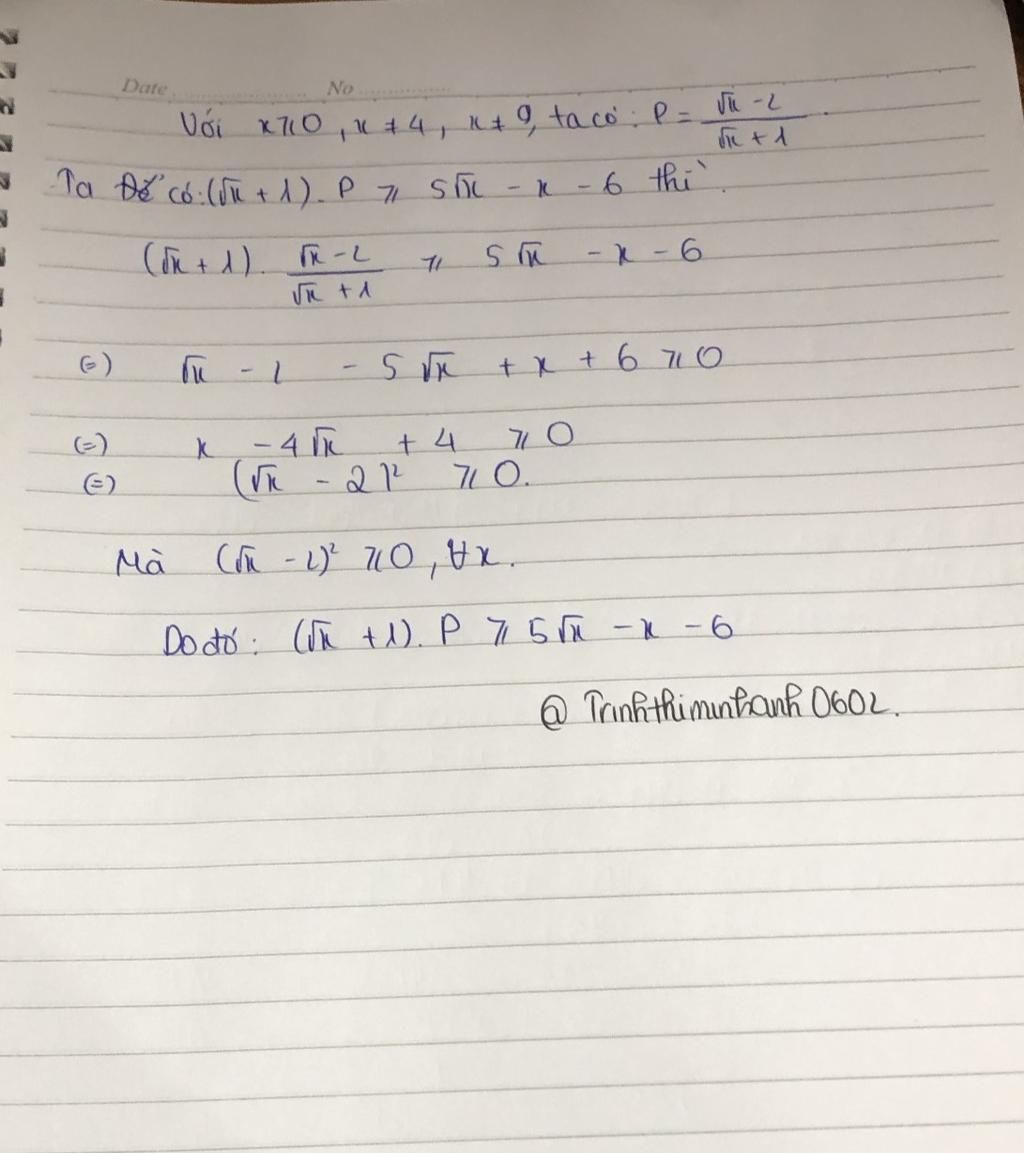 Date No
Với x ≥ 0, x ≠ 4, x ≠ 9, ta có: P = (√x - 2)/(√x + 1).
Ta Để có: (√x + 1). P ≥ 5√x - x - 6 thì
(√x + 1). (√x - 2)/(√x + 1) ≥ 5√x - x - 6
(=) √x - 2 - 5√x + x + 6 ≥ 0
(=) x - 4√x + 4 ≥ 0
(=) (√x - 2)² ≥ 0.
Mà (√x - 2)² ≥ 0, ∀x.
Do đó: (√x + 1). P ≥ 5√x - x - 6
@ Trinhthiminhanh0602.